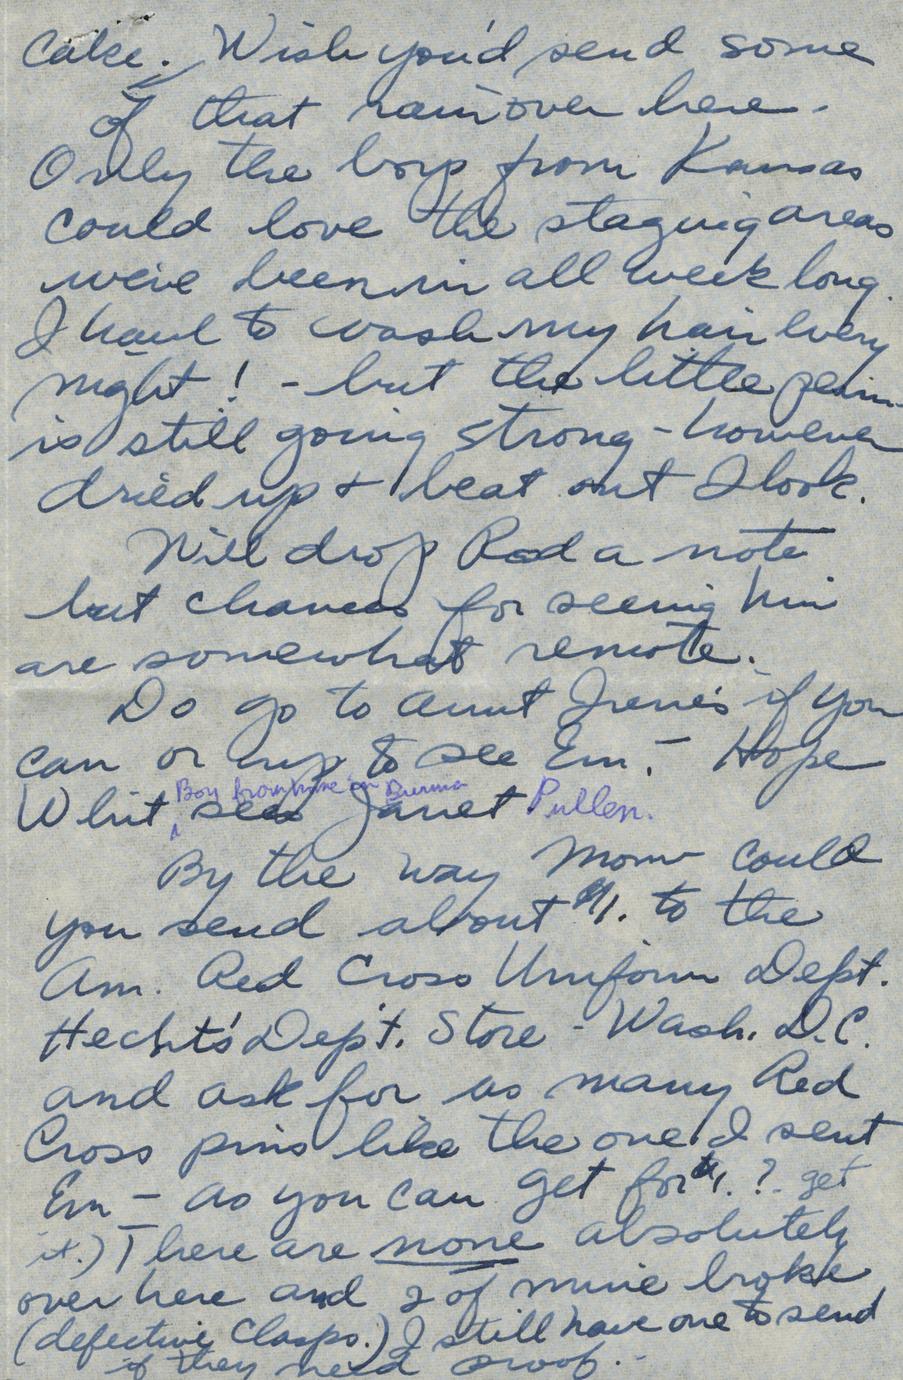 Cake. Wish you'd send some
of that rain over here.
Only the boys from Kansas
could love the staging areas
we've been in all week long.
I have to wash my hair every
night! - but the little perm
is still going strong - however
dried up & beat out I look.
Will drop Rod a note
but chances for seeing him
are somewhat remote.
Do go to Aunt Irene's if you
can or up to see Em. - Hope
Boy from here in Burma
Whit sees Janet Pullen.
By the way Mom could
you send about $1. to the
Am. Red Cross Uniform Dept.
Hecht's Dep't. Store - Wash. D.C.
and ask for as many Red
Cross pins like the one I sent
Em - as you can get for $1. ? get
it.) There are none absolutely
over here and 2 of mine broke
(defective Clasps.) I still have one to send
if they need proof. -